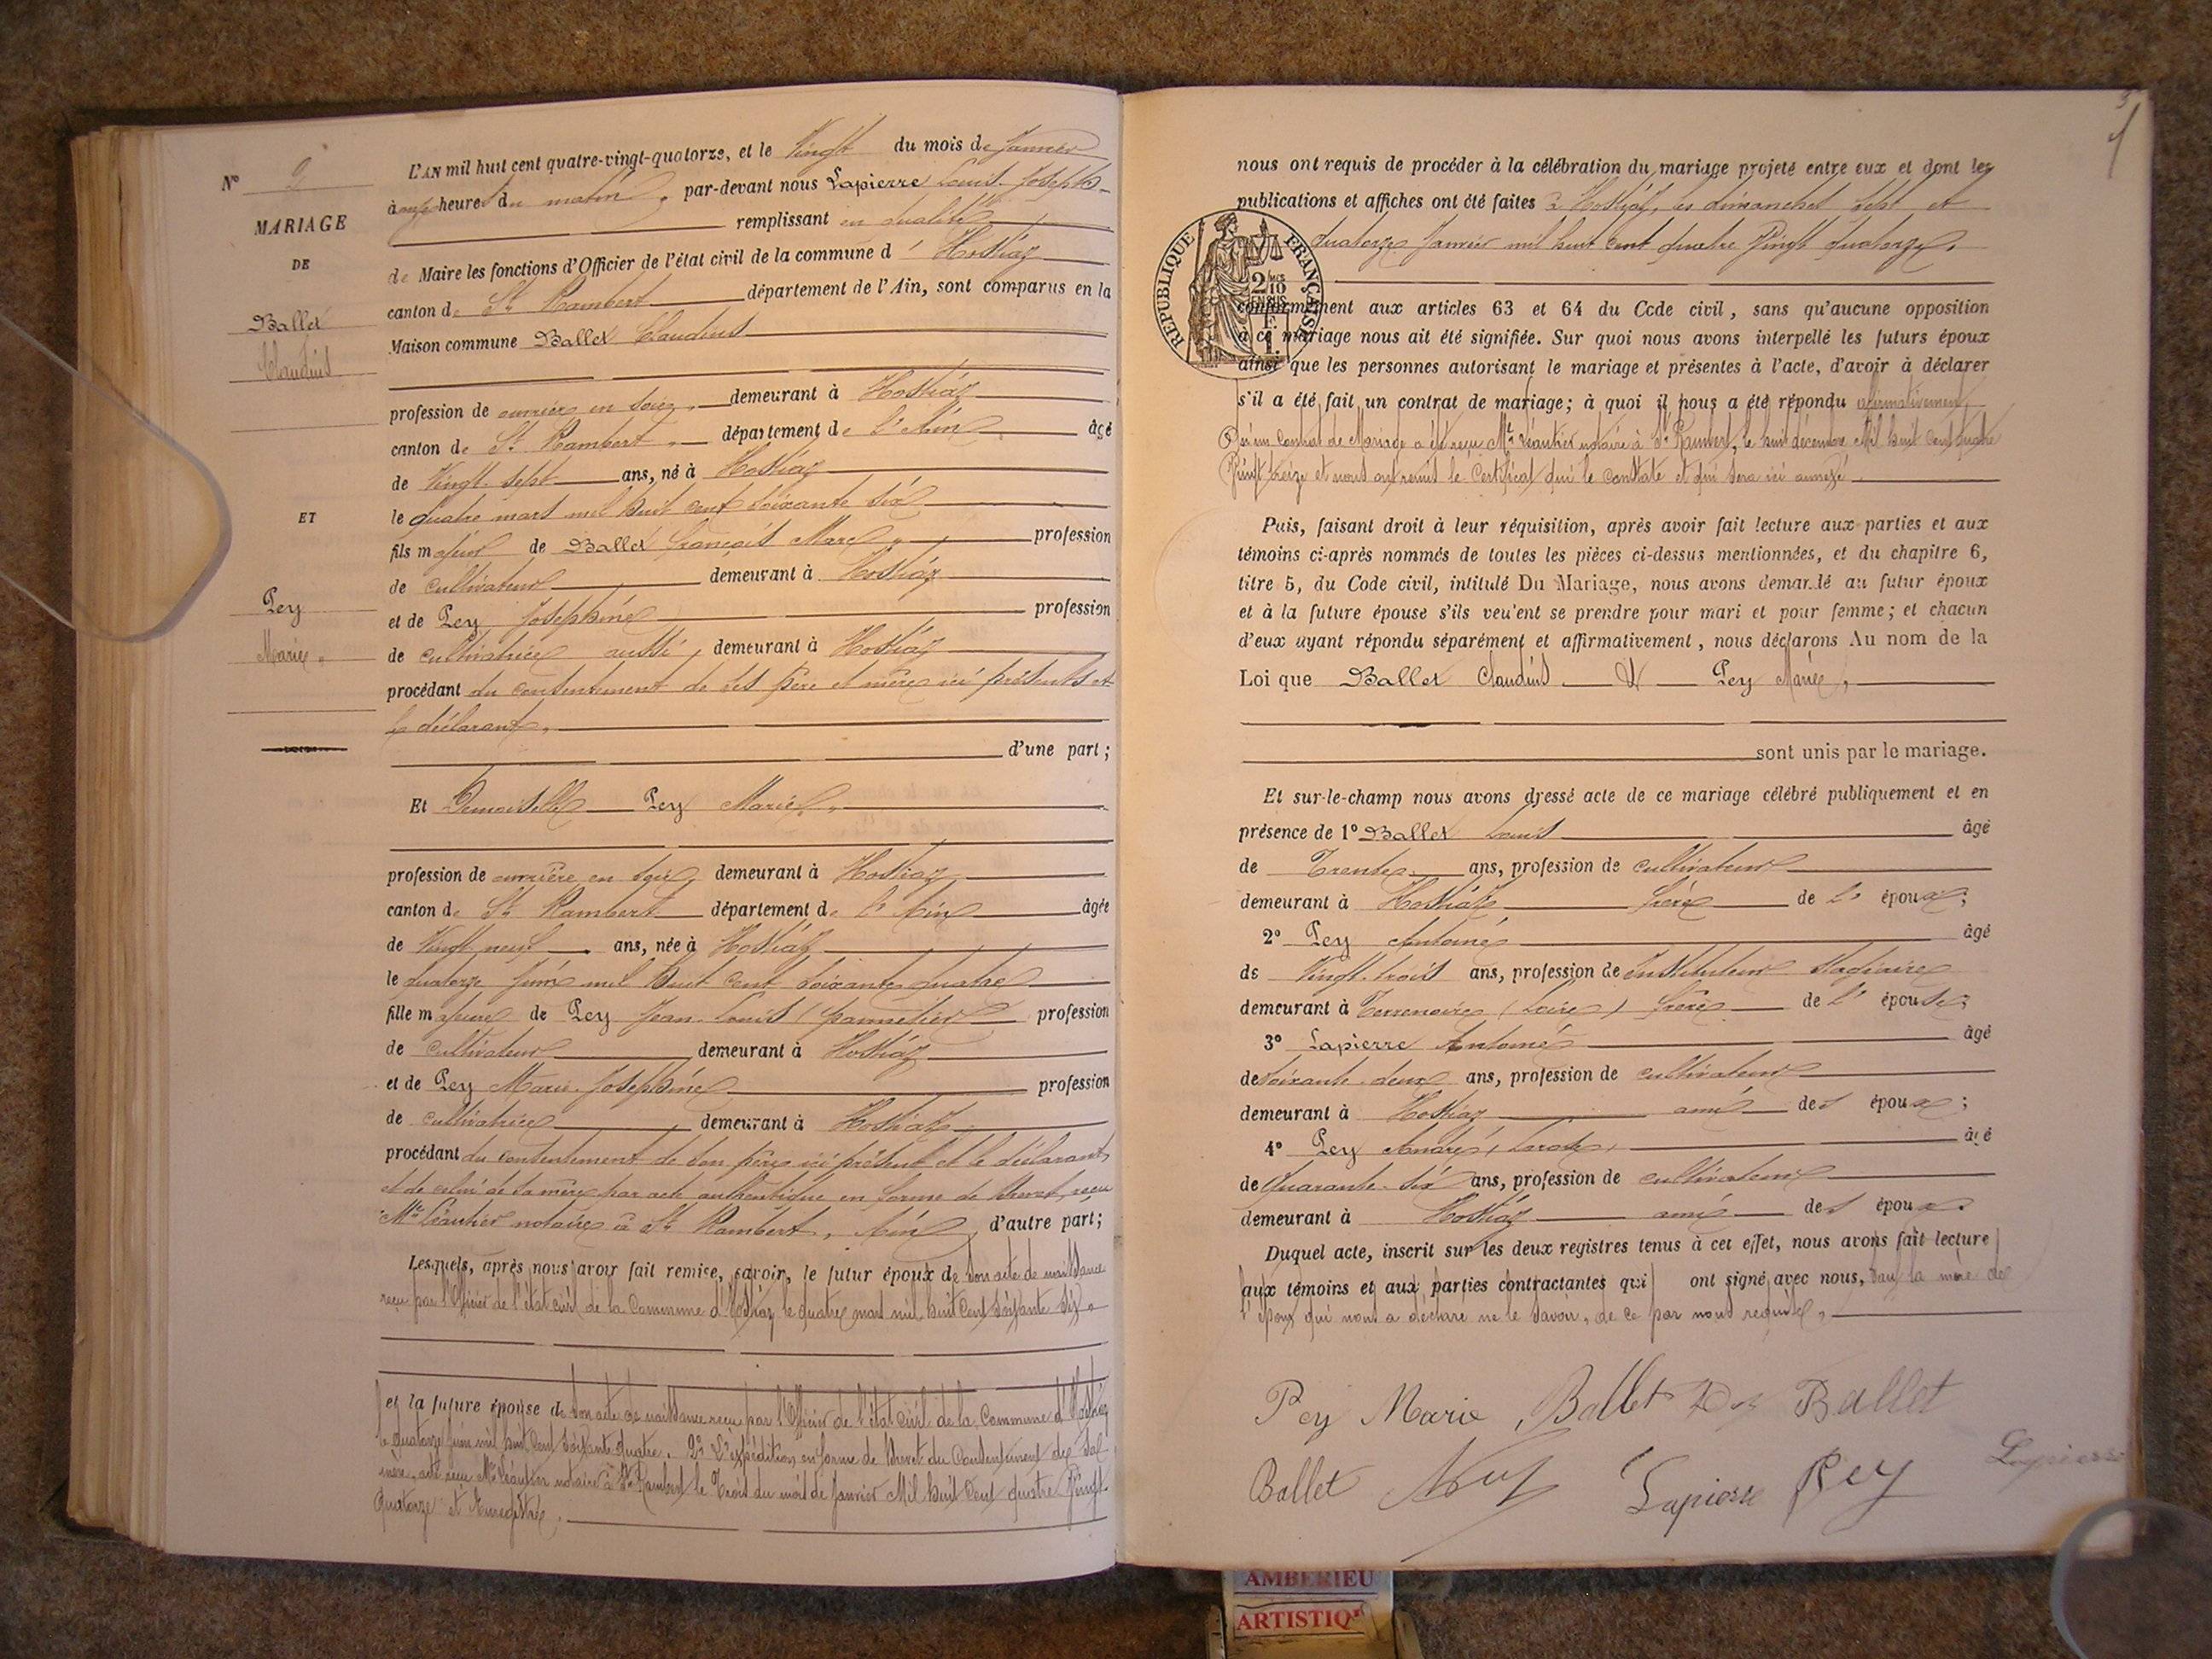 N° 2
MARIAGE
DE
Ballet
Claudius
ET
Pey
Marie
L'AN mil huit cent quatre-vingt-quatorze, et le Vingt du mois de Janvier
à onze heures du matin, par-devant nous Lapierre Louis-Joseph
remplissant en qualité
de Maire les fonctions d'Officier de l'état civil de la commune d'Hostiaz
canton de St Rambert département de l'Ain, sont comparus en la
Maison commune Ballet Claudius
profession de ouvrier en soie, demeurant à Hostiaz
canton de St Rambert département de l'Ain âgé
de Vingt-sept ans, né à Hostiaz
le quatre mars mil huit cent soixante six
fils majeur de Ballet François Marc profession
de cultivateur demeurant à Hostiaz
et de Pey Joséphine profession
de cultivatrice aussi demeurant à Hostiaz
procédant du consentement de ses père et mère ici présents et
le déclarant,
d'une part;
Et Demoiselle Pey Marie,
profession de ouvrière en soie, demeurant à Hostiaz
canton de St Rambert département de l'Ain âgée
de Vingt-neuf ans, née à Hostiaz
le quatorze juin mil huit cent soixante quatre
fille majeure de Pey Jean-Louis (pannetier) profession
de cultivateur demeurant à Hostiaz
et de Pey Marie-Joséphine profession
de cultivatrice demeurant à Hostiaz
procédant du consentement de son père ici présent et le déclarant,
et de celui de sa mère par acte authentique en forme de brevet, reçu
Me Léautier notaire à St Rambert, Ain, d'autre part;
Lesquels, après nous avoir fait remise, savoir, le futur époux de son acte de naissance
reçu par l'Officier de l'état civil de la Commune d'Hostiaz le quatre mars mil huit cent soixante six
et la future épouse de son acte de naissance reçu par l'Officier de l'état civil de la Commune d'Hostiaz
le quatorze juin mil huit cent soixante quatre. 2° L'expédition en forme de brevet du Consentement de sa
mère, acte reçu Me Léautier notaire à St Rambert le Trois du mois de Janvier Mil huit cent quatre Vingt-
Quatorze et Enregistré.
nous ont requis de procéder à la célébration du mariage projeté entre eux et dont les
publications et affiches ont été faites à Hostiaz, les dimanches sept et
quatorze Janvier mil huit cent quatre Vingt quatorze,
RÉPUBLIQUE FRANÇAISE
2/10
conformément aux articles 63 et 64 du Code civil, sans qu'aucune opposition
à ce mariage nous ait été signifiée. Sur quoi nous avons interpellé les futurs époux
ainsi que les personnes autorisant le mariage et présentes à l'acte, d'avoir à déclarer
s'il a été fait un contrat de mariage; à quoi il nous a été répondu affirmativement
Qu'un contrat de Mariage a été reçu Me Léautier notaire à St Rambert, le huit décembre Mil huit Cent quatre
Vingt treize et nous ont remis le Certificat qui le constate et qui sera ici annexé
Puis, faisant droit à leur réquisition, après avoir fait lecture aux parties et aux
témoins ci-après nommés de toutes les pièces ci-dessus mentionnées, et du chapitre 6,
titre 5, du Code civil, intitulé Du Mariage, nous avons demandé au futur époux
et à la future épouse s'ils veulent se prendre pour mari et pour femme; et chacun
d'eux ayant répondu séparément et affirmativement, nous déclarons Au nom de la
Loi que Ballet Claudius et Pey Marie,
sont unis par le mariage.
Et sur-le-champ nous avons dressé acte de ce mariage célébré publiquement et en
présence de 1° Ballet Louis âgé
de Trente ans, profession de cultivateur
demeurant à Hostiaz frère de l'époux;
2° Pey Antoine âgé
de Vingt-trois ans, profession de Instituteur stagiaire
demeurant à Terrenoire (Loire) frère de l'épouse;
3° Lapierre Antoine âgé
de soixante-deux ans, profession de cultivateur
demeurant à Hostiaz ami des époux;
4° Pey André, âgé
de Quarante-six ans, profession de cultivateur
demeurant à Hostiaz ami des époux.
Duquel acte, inscrit sur les deux registres tenus à cet effet, nous avons fait lecture
aux témoins et aux parties contractantes qui ont signé avec nous, sauf la mère de
l'époux qui nous a déclaré ne le savoir, de ce par nous requise,
Pey Marie Ballet Ballet
Ballet Pey Lapierre Pey Lapierre
AMBERIEU
ARTISTIQ